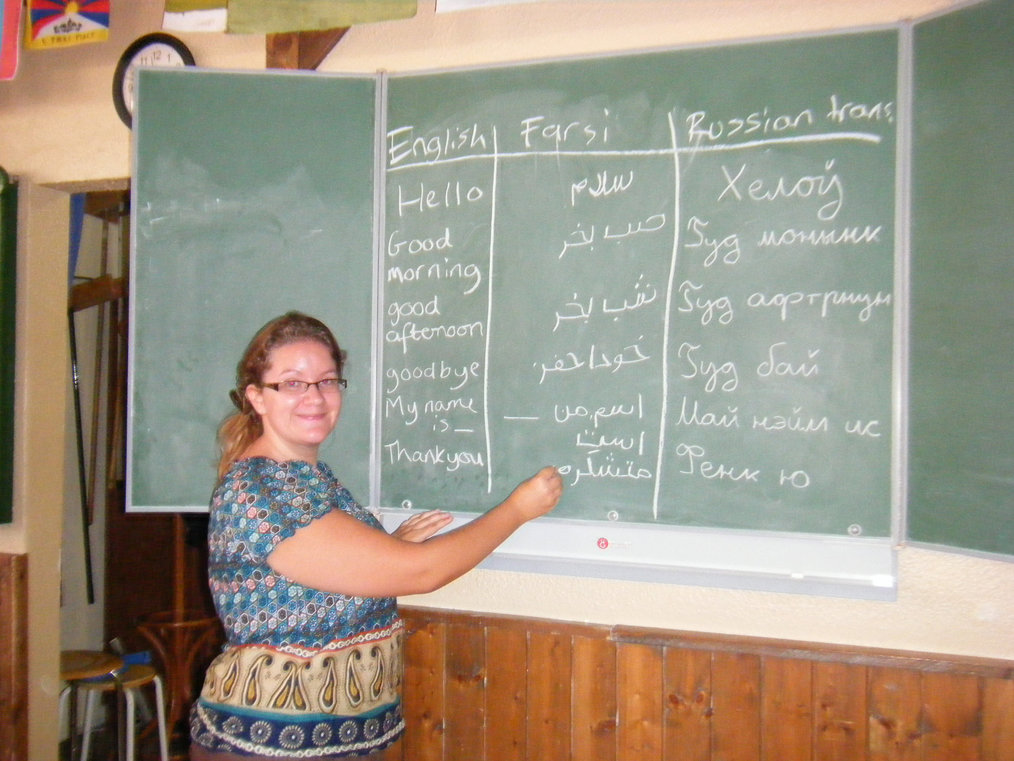 English Farsi Russian trans.
Hello سلام Хелоў
Good صب بخر Гуд монынк
morning
good شب بخر Гуд афтрнун
afternoon
goodbye خودا حفز Гуд бай
My name اسم من __ Май нэйм ис
is _ است
Thankyou متشکرم Фенк ю